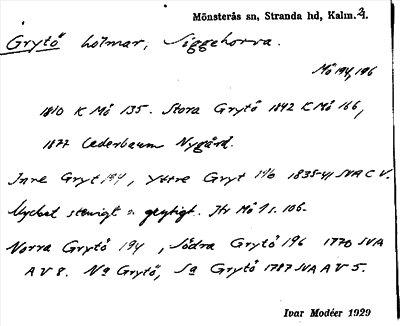 Mönsterås sn, Stranda hd, Kalm. l.
Grytö holmar, Siggehorva.
Mö 194, 196
1810 K Mö 135. Stora Grytö 1842 K Mö 166,
1877 Cederbaum Nygård.
Inre Gryt 194, Yttre Gryt 196 1835-41 SVA C V.
Mycket stenigt o. grytigt. Jfr Mö 1 s. 106.
Norra Grytö 194, Södra Grytö 196 1770 SVA
A V 8. Na Grytö, Sa Grytö 1787 SVA A V 5.
Ivar Modéer 1929